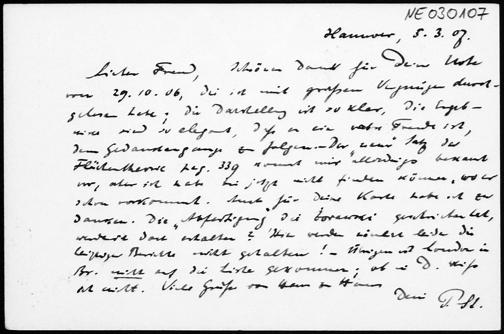 NE030107
Hannover, 5. 3. 07.
Lieber Freund, Schönen Dank für Deine Note
vom 29.10.06, die ich mit großem Vergnügen durch-
gelesen habe; die Darstellung ist so klar, die Ergeb-
nisse sind so elegant, daß es eine wahre Freude ist,
dem Gedankengange zu folgen. – Der "neue" Satz der
Flächentheorie pag. 339 kommt mir allerdings bekannt
vor, aber ich habe bis jetzt nicht finden können, wo er
schon vorkommt. Auch für Deine Karte habe ich zu
danken. Die "Abfertigung", die Zorawski geschrieben hat,
werde dort erhalten? Hier werden leider die
Leipziger Berichte nicht gehalten! – Übrigens ist London in
Br. nicht auf die Liste gekommen; ob in D. weiß
ich nicht. Viele Grüße von Haus zu Haus
Dein P. St.